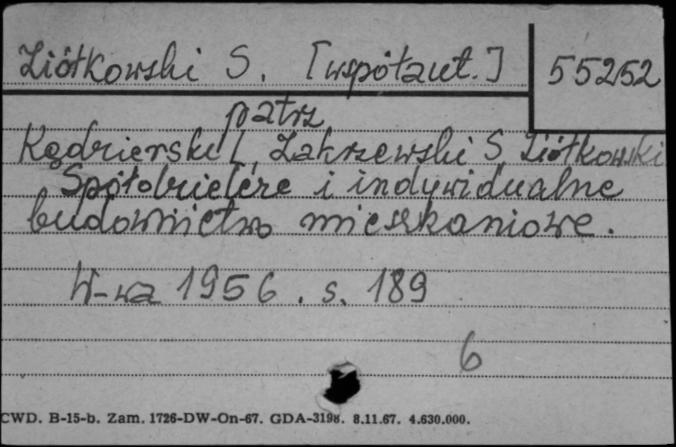 Ziółkowski S. [współaut.]
55252
patrz
Kędzierski L, Zakrzewski S, Ziółkowski
Spółdzielcze i indywidualne
budownictwo mieszkaniowe.
W-wa 1956. s. 189
6
CWD. B-15-b. Zam. 1726-DW-On-67. GDA-3198. 8.11.67. 4.630.000.